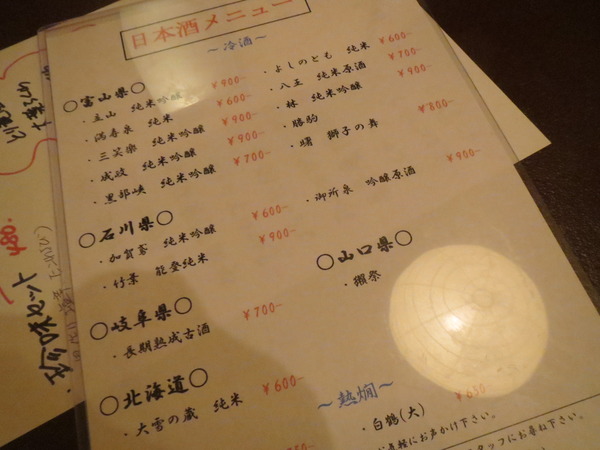 日本酒メニュー
～冷酒～
○富山県○
・立山 純米吟醸 ¥900-
・満寿泉 純米 ¥600-
・三笑楽 純米吟醸 ¥900-
・成政 純米吟醸 ¥900-
・黒部峡 純米吟醸 ¥700-
・よしのとも 純米 ¥600-
・八王 純米原酒 ¥700-
・林 純米吟醸 ¥900-
・勝駒
・曙 獅子の舞 ¥800-
・御所泉 吟醸原酒 ¥900-
○石川県○
・加賀鶴 純米吟醸 ¥600-
・竹葉 能登純米 ¥900-
○岐阜県○
・長期熟成古酒 ¥700-
○北海道○
・大雪の蔵 純米 ¥600-
○山口県○
・獺祭
～熱燗～
・白鶴(大) ¥650
お気軽にお声かけ下さい。
スタッフにお尋ね下さい。
480-
・珍味セット